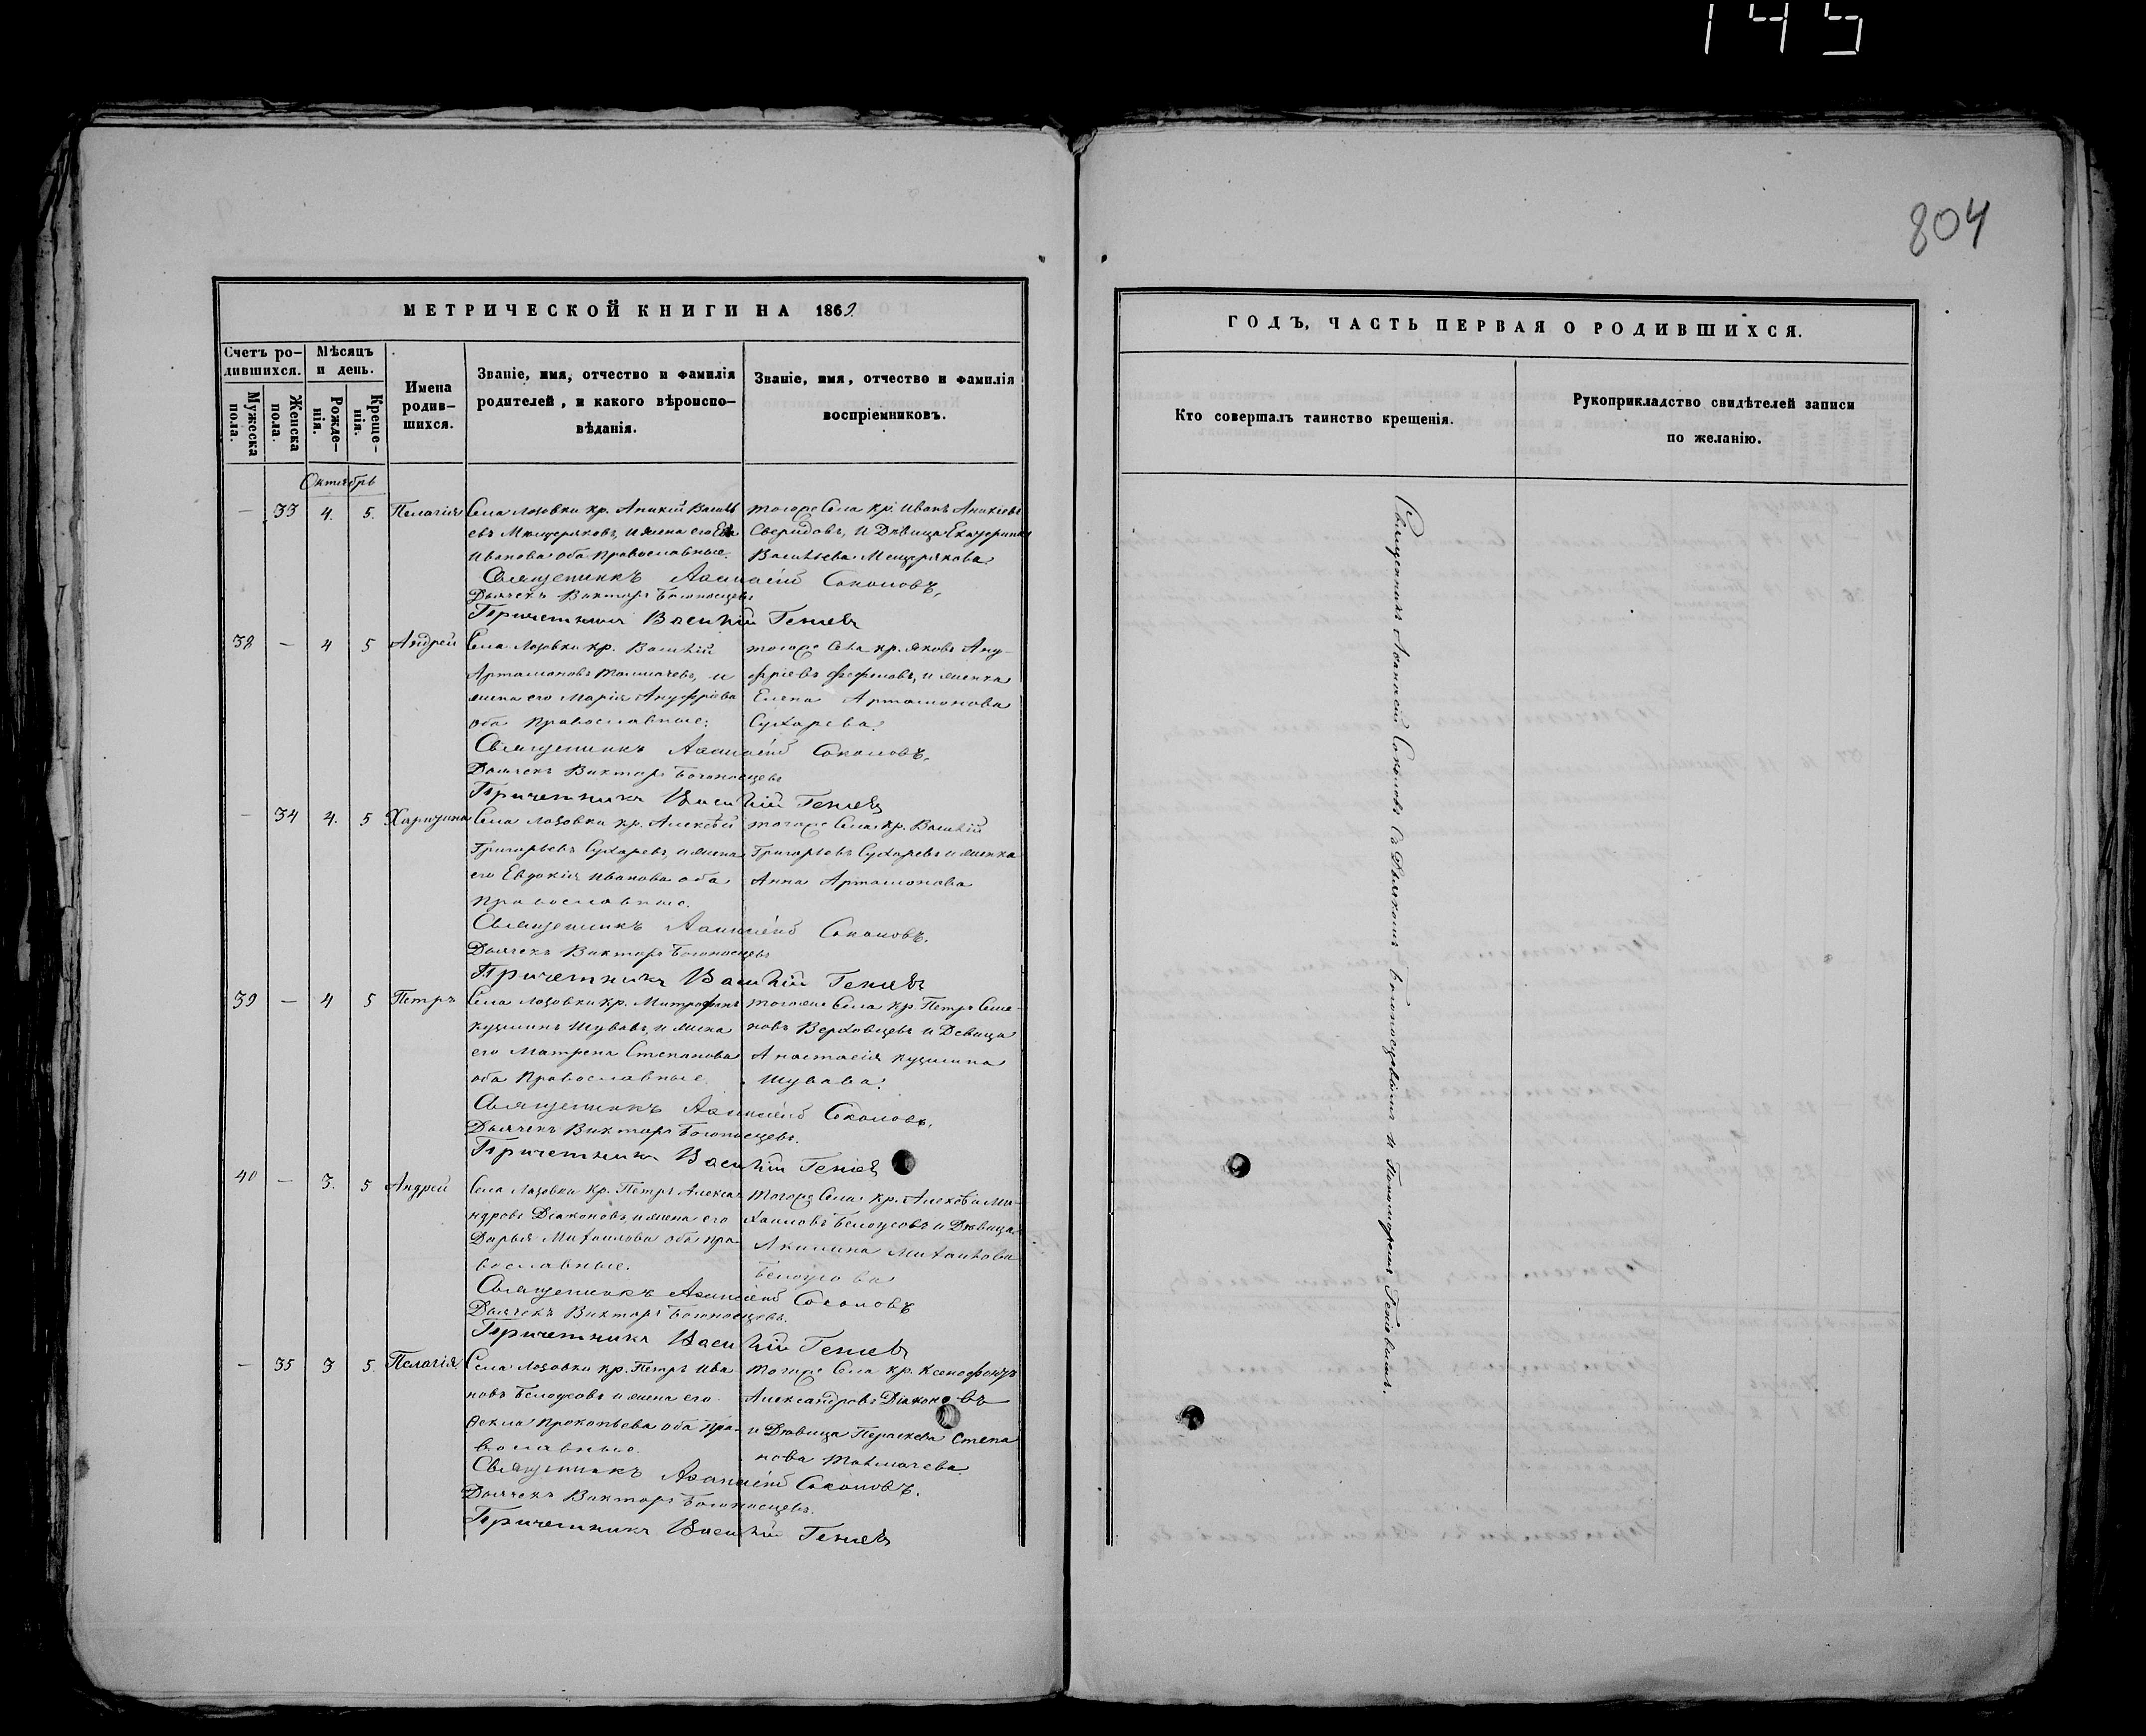 145
804
МЕТРИЧЕСКОЙ КНИГИ НА 1869.
Счетъ ро-
дившихся.
Мѣсяцъ
и день.
Мужеска
пола.
Женска
пола.
Рожде-
нія.
Креще-
нія.
Имена
родив-
шихся.
Званіе, имя, отчество и фамилія
родителей, и какого вѣроиспо-
вѣданія.
Званіе, имя, отчество и фамилія
воспріемниковъ.
Октябрь
— 33 4. 5. Пелагія
Села Лозовки кр. Аникій Василь
евъ Мещеряковъ, и жена его
Иванова оба православные.
тогоже Села кр. Иванъ Аникіевъ
Свиридовъ, и Дѣвица Екатерина
Васильева Мещерякова
Священникъ Аѳанасій Соколовъ,
Дьячекъ Викторъ Богоносцевъ
Причетникъ Василій Геніевъ
38 — 4 5 Андрей
Села Лозовки кр. Василій
Артамоновъ Толмачевъ, и
жена его Марія Ануфріева
оба Православные.
тогоже Села кр. Яковъ Ану-
фріевъ Фефиловъ, и женка
Елена Артамонова
Сухарева.
Священникъ Аѳанасій Соколовъ.
Дьячекъ Викторъ Богоносцевъ
Причетникъ Василій Геніевъ
— 34 4. 5 Харитина
Села Лозовки кр. Алексѣй
Григорьевъ Сухаревъ, и жена
его Евдокія Иванова оба
православные.
тогоже Села кр. Василій
Григорьевъ Сухаревъ и женка
Анна Артамонова
Священникъ Аѳанасій Соколовъ.
Дьячекъ Викторъ Богоносцевъ
Причетникъ Василій Геніевъ
39 — 4 5 Петръ
Села Лозовки кр. Митрофанъ
Кузминъ Шуваевъ, и жена
его Матрена Степанова
оба Православные.
тогоже Села кр. Петръ Семе-
новъ Верховцевъ и Девица
Анастасія Кузмина
Шуваева.
Священникъ Аѳанасій Соколовъ.
Дьячекъ Викторъ Богоносцевъ.
Причетникъ Василій Геніевъ
40 — 3. 5 Андрей
Села Лозовки кр. Петръ Алекса-
ндровъ Діаконовъ, и жена его
Дарья Михаилова оба пра-
вославные.
тогоже Села кр. Алексѣй Ми-
хаиловъ Белоусовъ и Дѣвица
Акилина Михаилова
Белоусова
Священникъ Аѳанасій Соколовъ
Дьячекъ Викторъ Богоносцевъ.
Причетникъ Василій Геніевъ
— 35 3 5. Пелагія
Села Лозовки кр. Петръ Ива
новъ Белоусовъ и жена его
Ѳекла Прокопьева оба пра-
вославные.
тогоже Села кр. Ксенофонтъ
Александровъ Діаконовъ
и Дѣвица Параскева Степа
нова Толмачева.
Священникъ Аѳанасій Соколовъ.
Дьячекъ Викторъ Богоносцевъ.
Причетникъ Василій Геніевъ
ГОДЪ, ЧАСТЬ ПЕРВАЯ О РОДИВШИХСЯ.
Кто совершалъ таинство крещенія.
Рукоприкладство свидѣтелей записи
по желанію.
Священникъ Аѳанасій Соколовъ Съ Дьячкомъ Богоносцевымъ и Пономаремъ Геніевымъ.